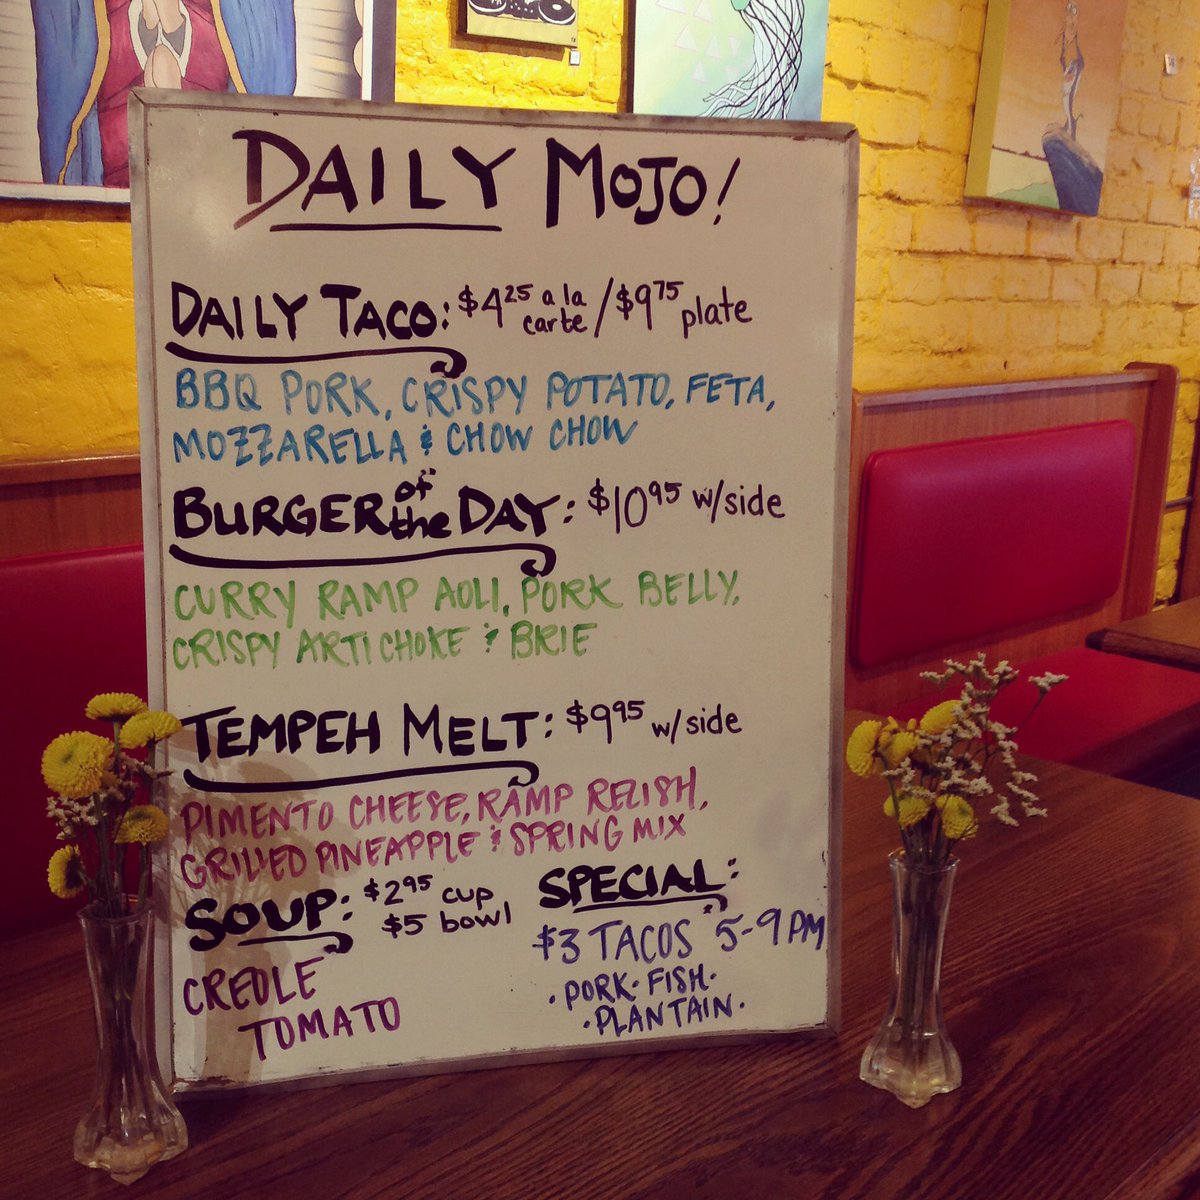 DAILY MOJO!
DAILY TACO: $4.25 a la carte / $9.75 plate
BBQ PORK, CRISPY POTATO, FETA,
MOZZARELLA & CHOW CHOW
BURGER of the DAY: $10.95 w/side
CURRY RAMP AOLI, PORK BELLY,
CRISPY ARTICHOKE & BRIE
TEMPEH MELT: $9.95 w/side
PIMENTO CHEESE, RAMP RELISH,
GRILLED PINEAPPLE & SPRING MIX
SOUP: $2.95 cup
$5 bowl
CREOLE
TOMATO
SPECIAL:
$3 TACOS 5-9 PM
· PORK · FISH ·
· PLANTAIN ·